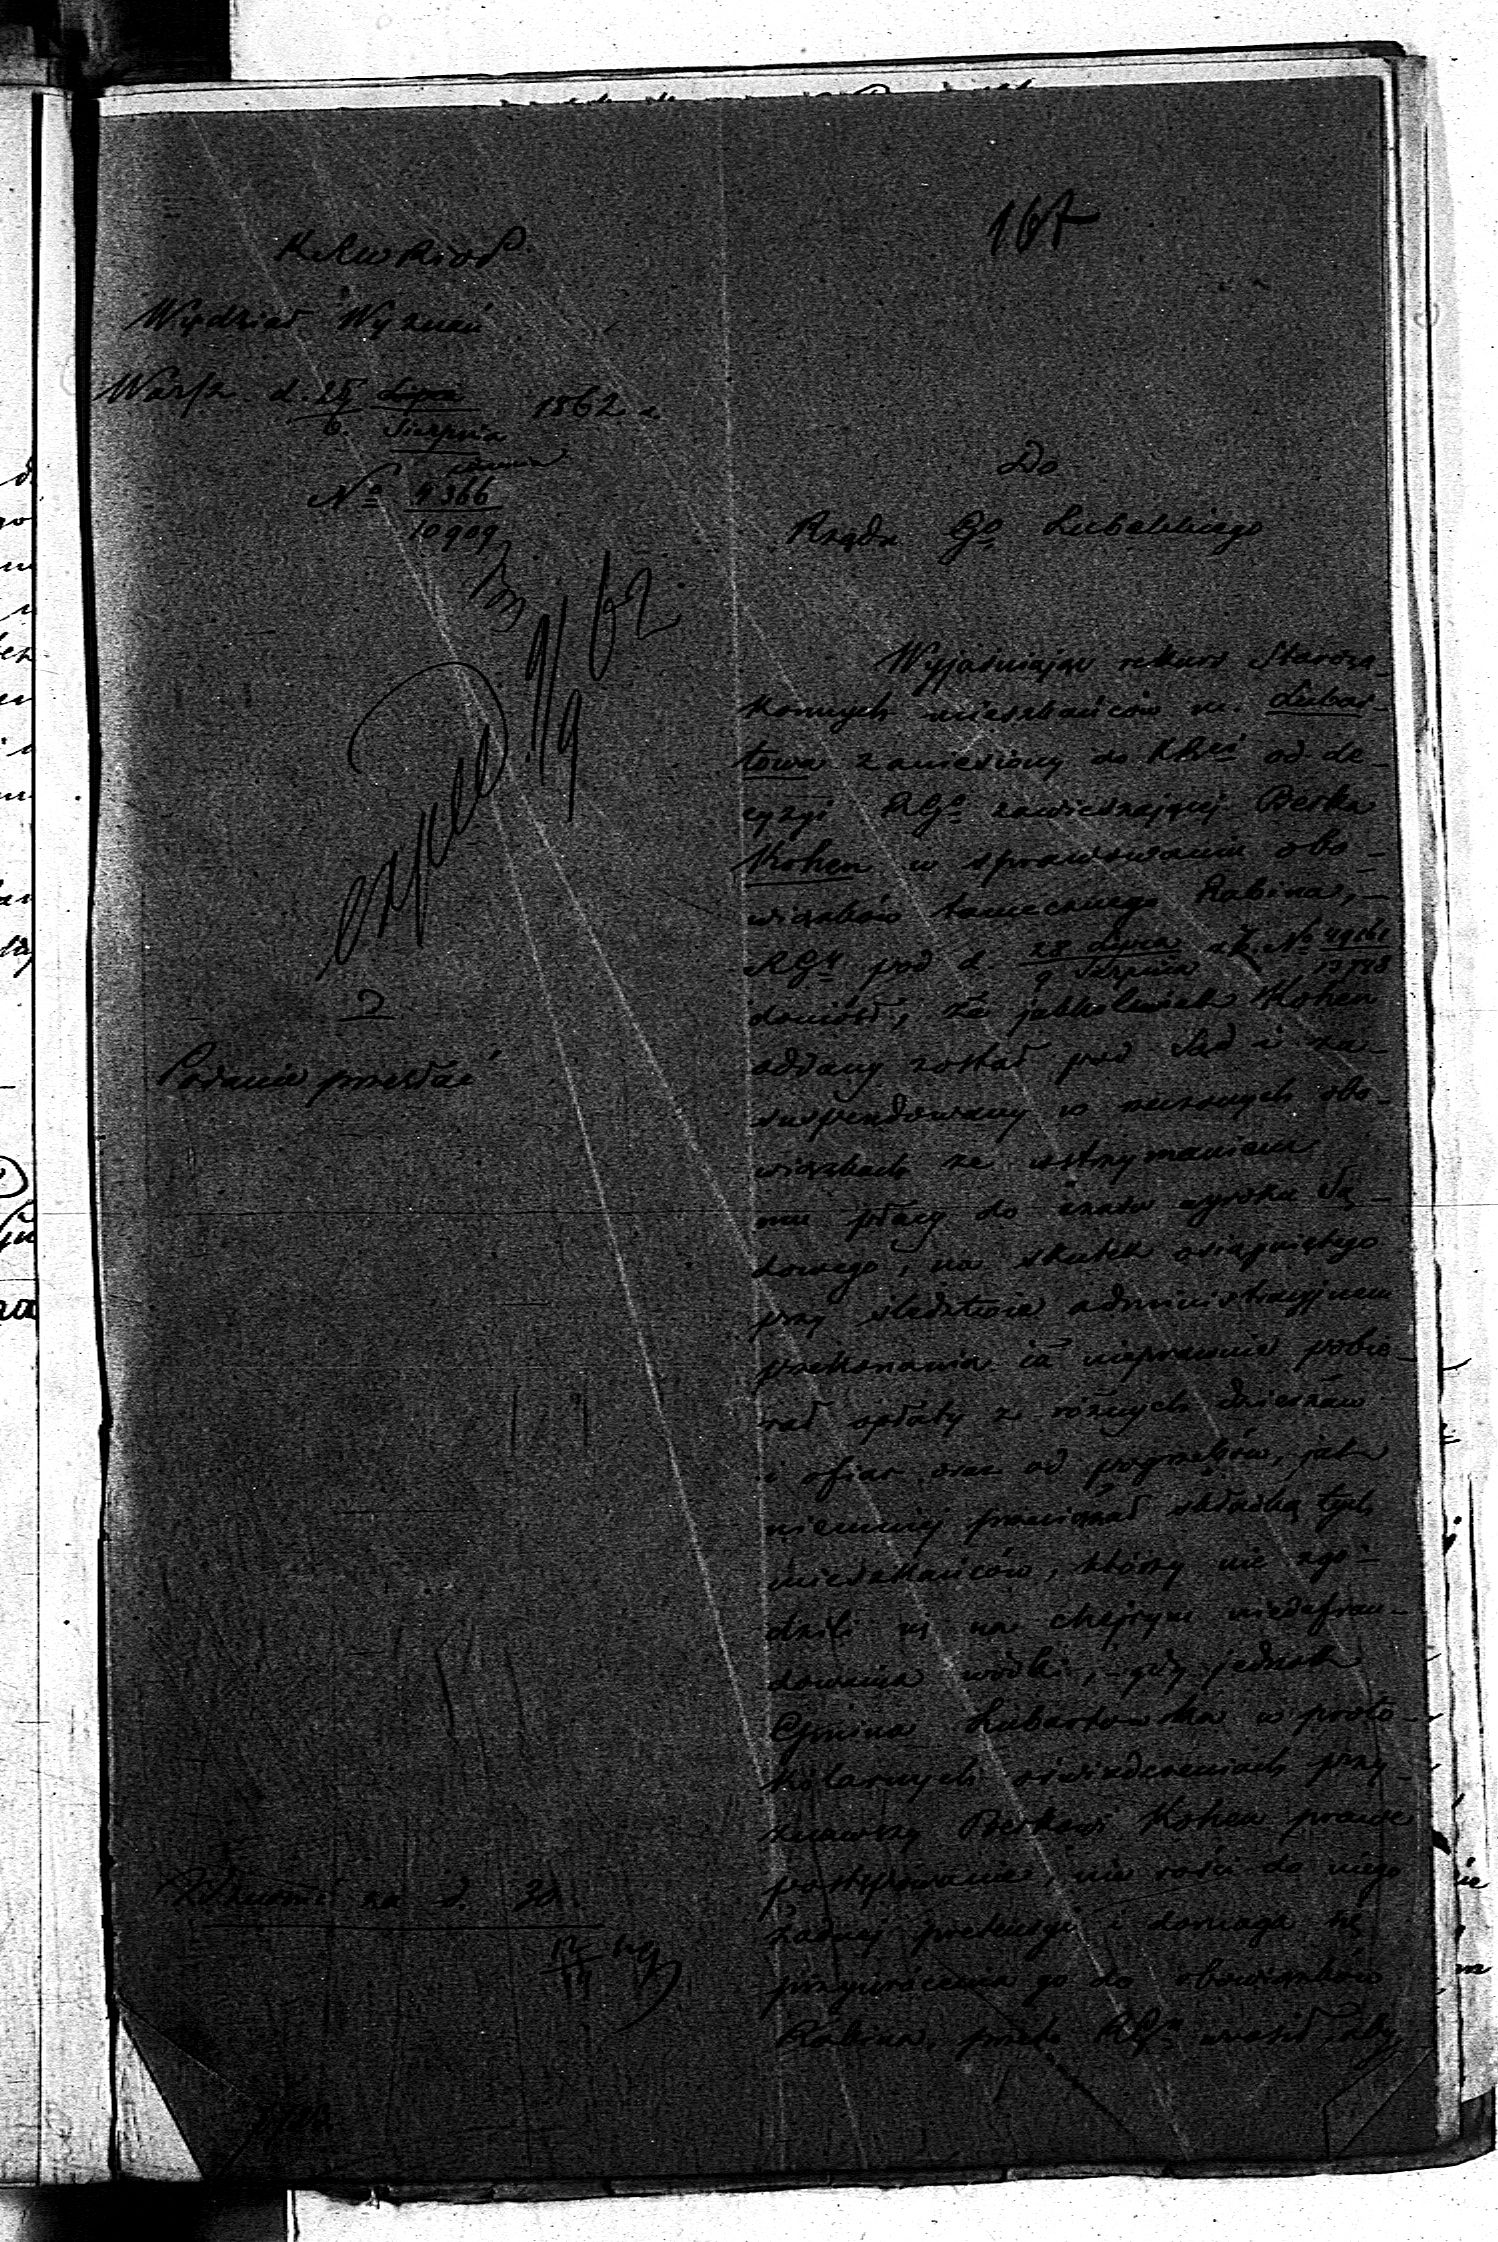 167
K R W R i O P
Wydział Wyznań
Warsz. d. 25 Lipca 1862 r.
6. Sierpnia
No 4366
10909
9/9 62
exped
Podanie przesłać
na d. 30
Do
Rządu Go Lubelskiego
Wyjaśniając rekurs Staroza-
konnych mieszkańców m. Lubar-
towa zaniesiony do KRei od de-
cyzyi RGo zawieszającej Berka
Kohen w sprawowaniu obo-
wiązków tamecznego Rabina, -
RGy pod d. 28 Lipca / 9 Sierpnia z No 49161 /
doniósł, że jakkolwiek Kohen
oddany został pod Sąd i za-
suspendowany w rzeczonych obo-
wiązkach ze wstrzymaniem
mu płacy do czasu wyroku Są-
dowego, na skutek osiągniętego
przy śledztwie administracyjnem
przekonania iż nieprawnie pobie-
rał opłaty z różnych
i ofiar oraz od pogrzebów, jako
niemniej przeciążał składką tych
mieszkańców, którzy nie zgo-
dzili się na chejrym niedefrau-
dowania wódki, - gdy jednak
Gmina Lubartowska w proto-
kólarnych oświadczeniach przy-
znawszy Berkowi Kohen prawe
postępowanie, nie rości do niego
żadnej pretensyi i domaga się
przywrócenia go do obowiązków
Rabina, przeto RGy wnosił żeby